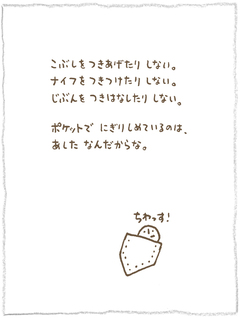 こぶしを つきあげたり しない。
ナイフを つきつけたり しない。
じぶんを つきはなしたり しない。
ポケットで にぎりしめているのは、
あした なんだからな。
ちわっす!